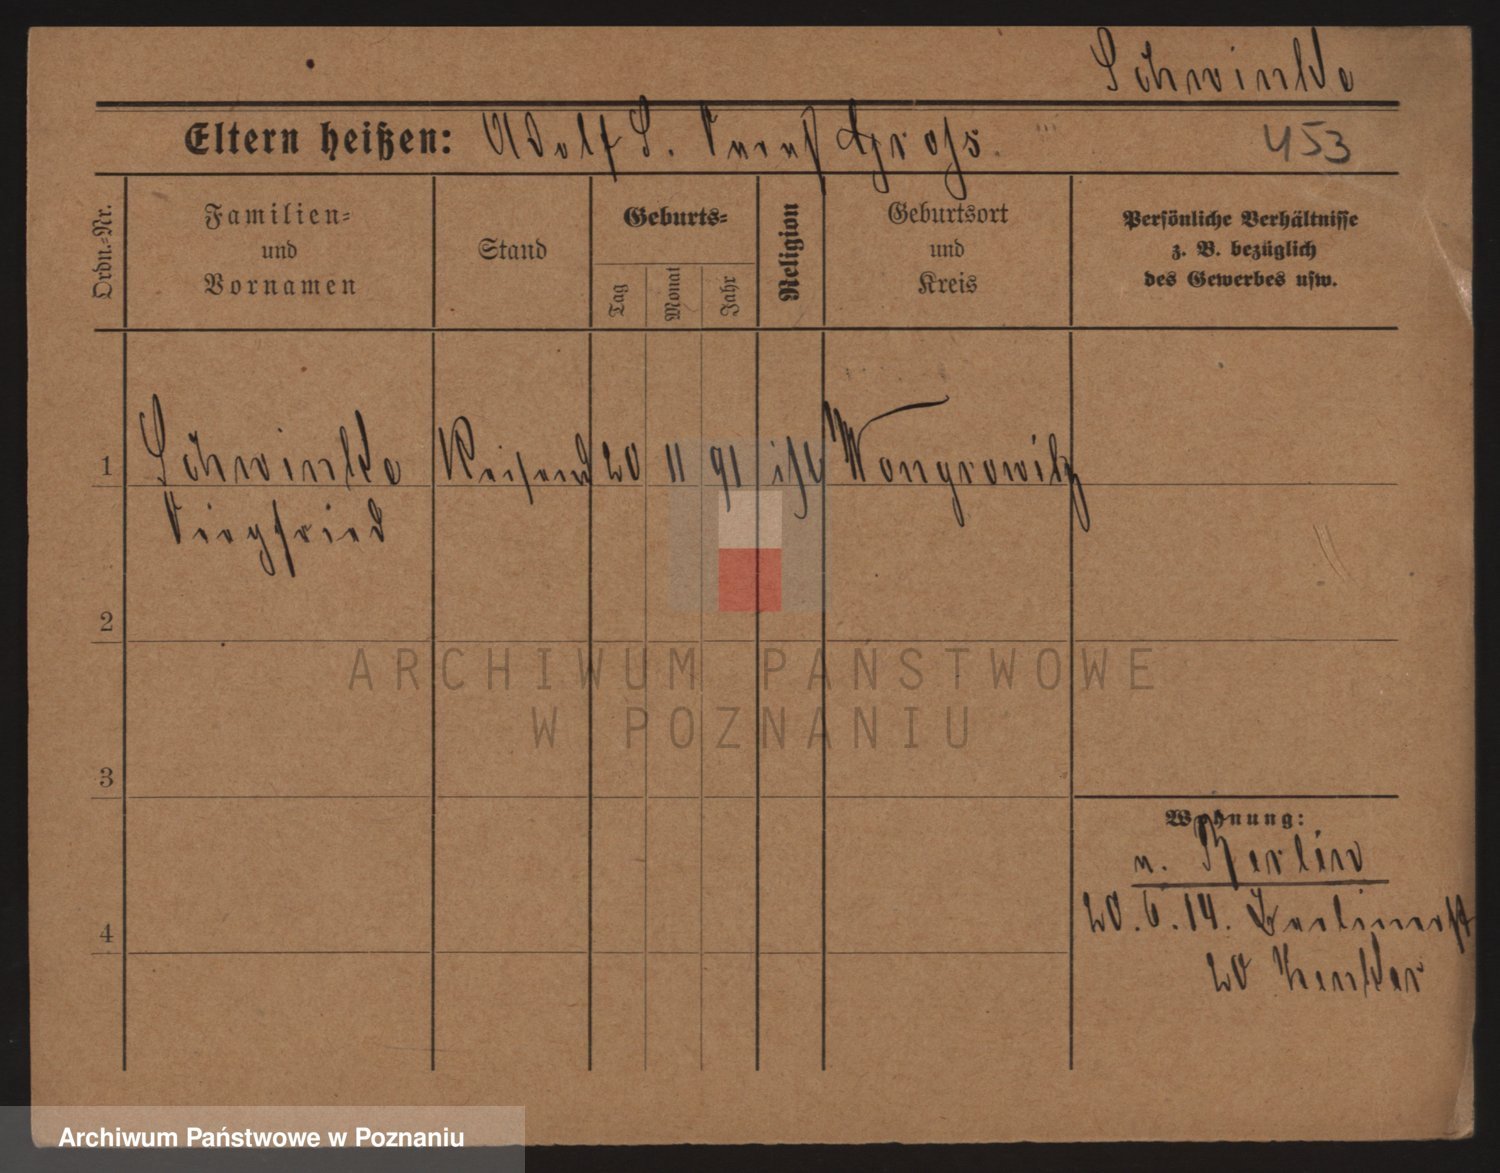 Schwinke
Eltern heißen: Adolf S. Gross
453
Ordn.=Nr.
Familien=
und
Vornamen
Stand
Geburts=
Tag
Monat
Jahr
Religion
Geburtsort
und
Kreis
Persönliche Verhältnisse
z. B. bezüglich
des Gewerbes usw.
1
Siegfried
20
11
91
Wongrowitz
2
3
4
Wohnung:
n. Berlin
20.6.14. Berlinerst
20
ARCHIWUM PAŃSTWOWE
W POZNANIU
Archiwum Państwowe w Poznaniu